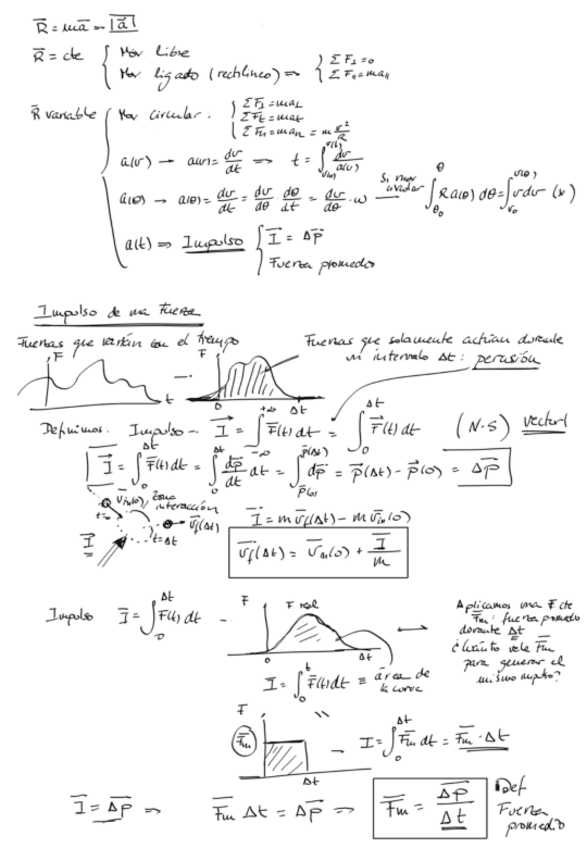 R̄ = mā → |ā|
R̄ = cte { Mov. Libre
Mov ligado (rectilíneo) => { ΣF⊥ = 0
ΣF∥ = ma∥
R̄ variable { Mov circular. { ΣF⊥ = ma⊥
ΣFt = mat
ΣFn = man = m v²/R
a(v) → a(v) = dv/dt => t = ∫_{v(0)}^{v(t)} dv/a(v)
a(θ) → a(θ) = dv/dt = dv/dθ dθ/dt = dv/dθ · ω Si mov circular → ∫_{θ₀}^{θ} R a(θ) dθ = ∫_{v₀}^{v(θ)} v dv (*)
a(t) => Impulso { Ī = Δp̄
Fuerza promedio
Impulso de una Fuerza
Fuerzas que varían con el tiempo
Fuerzas que solamente actúan durante
un intervalo Δt: percusión
F t
F 0 Δt
Definimos: Impulso → Ī = ∫_{-∞}^{+∞} F̄(t) dt = ∫_0^{Δt} F̄(t) dt (N·S) vector
Ī = ∫_0^{Δt} F̄(t) dt = ∫_0^{Δt} dp̄/dt dt = ∫_{p̄(0)}^{p̄(Δt)} dp̄ = p̄(Δt) - p̄(0) = Δp̄
v̄in(0) zona interacción
t=0 v̄f(Δt)
t=Δt
Ī
Ī = m v̄f(Δt) - m v̄in(0)
v̄f(Δt) = v̄in(0) + Ī/m
Impulso Ī = ∫_0^{Δt} F̄(t) dt →
F F real
0 Δt
Aplicamos una F cte
F̄m: fuerza promedio
durante Δt
¿Cuánto vale F̄m
para generar el
mismo impulso?
I = ∫_0^t F̄(t) dt ≡ área de
la curva
F
F̄m
Δt
→ I = ∫_0^{Δt} F̄m dt = F̄m · Δt
Ī = Δp̄ => F̄m Δt = Δp̄ => F̄m = Δp̄/Δt
Def
Fuerza
promedio